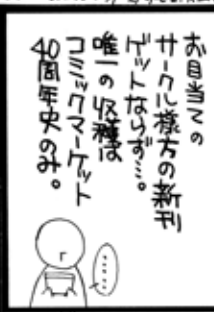 お目当ての
サークル様方の新刊
ゲットならず…。
唯一の収穫は
コミックマーケット
40周年史のみ。
……